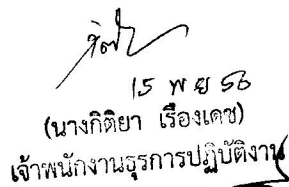 15 พย 56
(นางกิติยา เรืองเดช)
เจ้าพนักงานธุรการปฏิบัติงาน